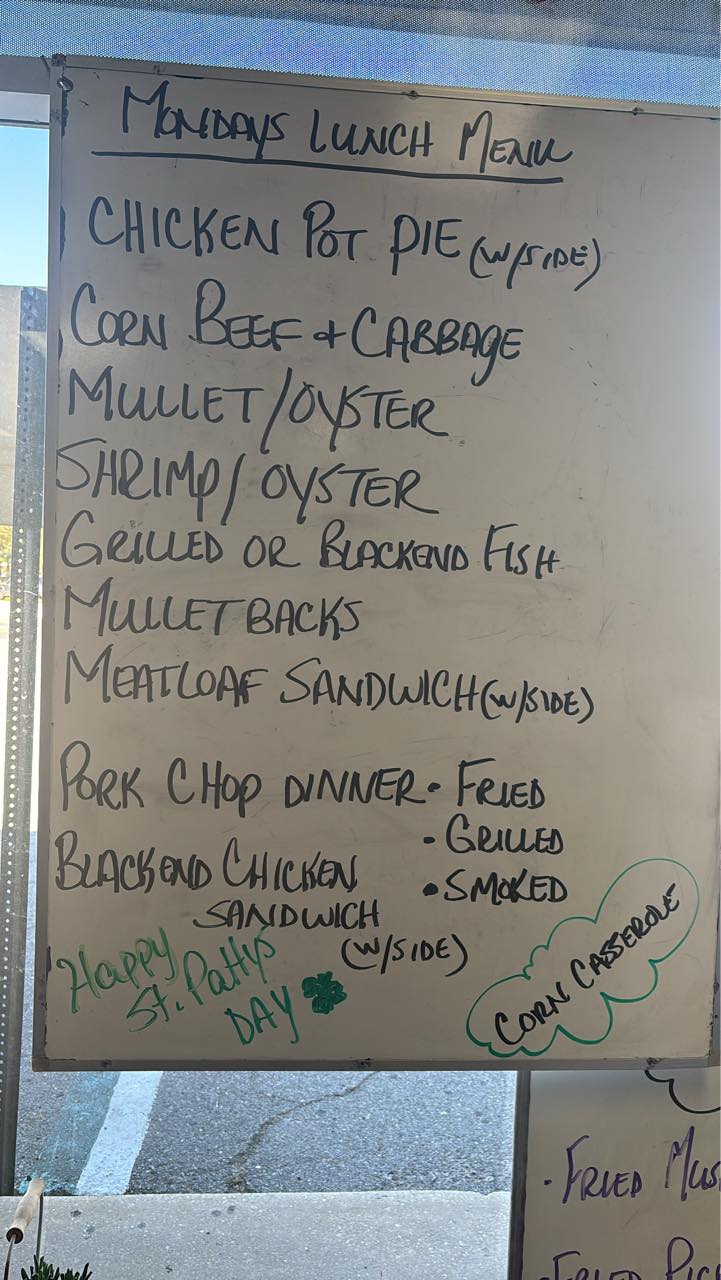 MONDAYS LUNCH MENU
CHICKEN POT PIE (W/SIDE)
CORN BEEF + CABBAGE
MULLET/OYSTER
SHRIMP/OYSTER
GRILLED OR BLACKEND FISH
MULLET BACKS
MEATLOAF SANDWICH (W/SIDE)
PORK CHOP DINNER • FRIED
• GRILLED
• SMOKED
BLACKEND CHICKEN
SANDWICH
(W/SIDE)
Happy
St. Pattys
DAY
CORN CASSEROLE
• FRIED
FRIED